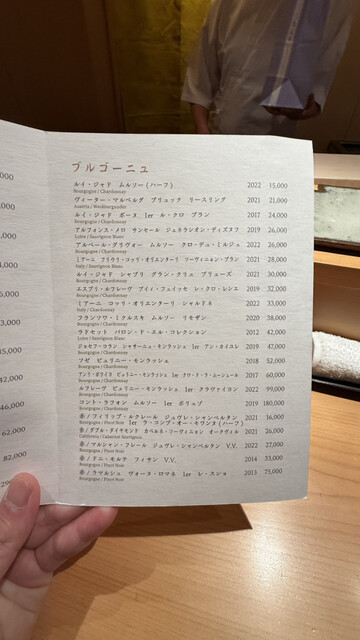 ,000
,000
,000
,000
,000
,000
,000
46,000
62,000
82,000
ブルゴーニュ
ルイ・ジャド ムルソー(ハーフ) 2022 15,000
Bourgogne / Chardonnay
ヴィーター・マルベルグ ブリュック リースリング 2021 21,000
Austria / Weinburgunder
ルイ・ジャド ボーヌ 1er ル・クロ ブラン 2017 24,000
Bourgogne / Chardonnay
アルフォンス・メロ サンセール ジェネラシオン・ディズヌフ 2019 26,000
Loire / Sauvignon Blanc
アルベール・グリヴォー ムルソー クロ・デュ・ミルジェ 2022 26,000
Bourgogne / Chardonnay
ミアーニ フリウリ・コッリ・オリエンターリ ソーヴィニョン・ブラン 2021 28,000
Italy / Sauvignon Blanc
ルイ・ジャド シャブリ グラン・クリュ プリューズ 2021 30,000
Bourgogne / Chardonnay
エスプリ・ルフレーヴ プイイ・フュイッセ レ・クロ・レシエ 2019 32,000
Bourgogne / Chardonnay
ミアーニ コッリ・オリエンターリ シャルドネ 2022 33,000
Italy / Chardonnay
フランソワ・ミクルスキ ムルソー リモザン 2020 38,000
Bourgogne / Chardonnay
ラドセット バロン・ド・エル・コレクション 2012 42,000
Loire / Sauvignon Blanc
ジョセフ・コラン シャサーニュ・モンラッシェ 1er アン・カイユレ 2019 47,000
Bourgogne / Chardonnay
ソゼ ピュリニー・モンラッシェ 2018 52,000
Bourgogne / Chardonnay
アンリ・ボワイヨ ピュリニー・モンラッシェ 1er クロ・ド・ラ・ムーシェール 2017 60,000
Bourgogne / Chardonnay
ルフレーヴ ピュリニー・モンラッシェ 1er クラヴァイヨン 2022 99,000
Bourgogne / Chardonnay
コント・ラフォン ムルソー 1er ポリュゾ 2019 180,000
Bourgogne / Chardonnay
赤／フィリップ・ルクレール ジュヴレ・シャンベルタン 2021 16,000
Bourgogne / Pinot Noir 1er ラ・コンブ・オー・モワンヌ(ハーフ)
赤／ダブル・ダイヤモンド カベルネ・ソーヴィニョン オークヴィル 2021 26,000
California / Cabernet Sauvignon
赤／マルシャン・フレール ジュヴレ・シャンベルタン V.V. 2022 27,000
Bourgogne / Pinot Noir
赤／ドニ・モルテ フィサン V.V. 2014 33,000
Bourgogne / Pinot Noir
赤／ラマルシュ ヴォーヌ・ロマネ 1er レ・スショ 2013 75,000
Bourgogne / Pinot Noir